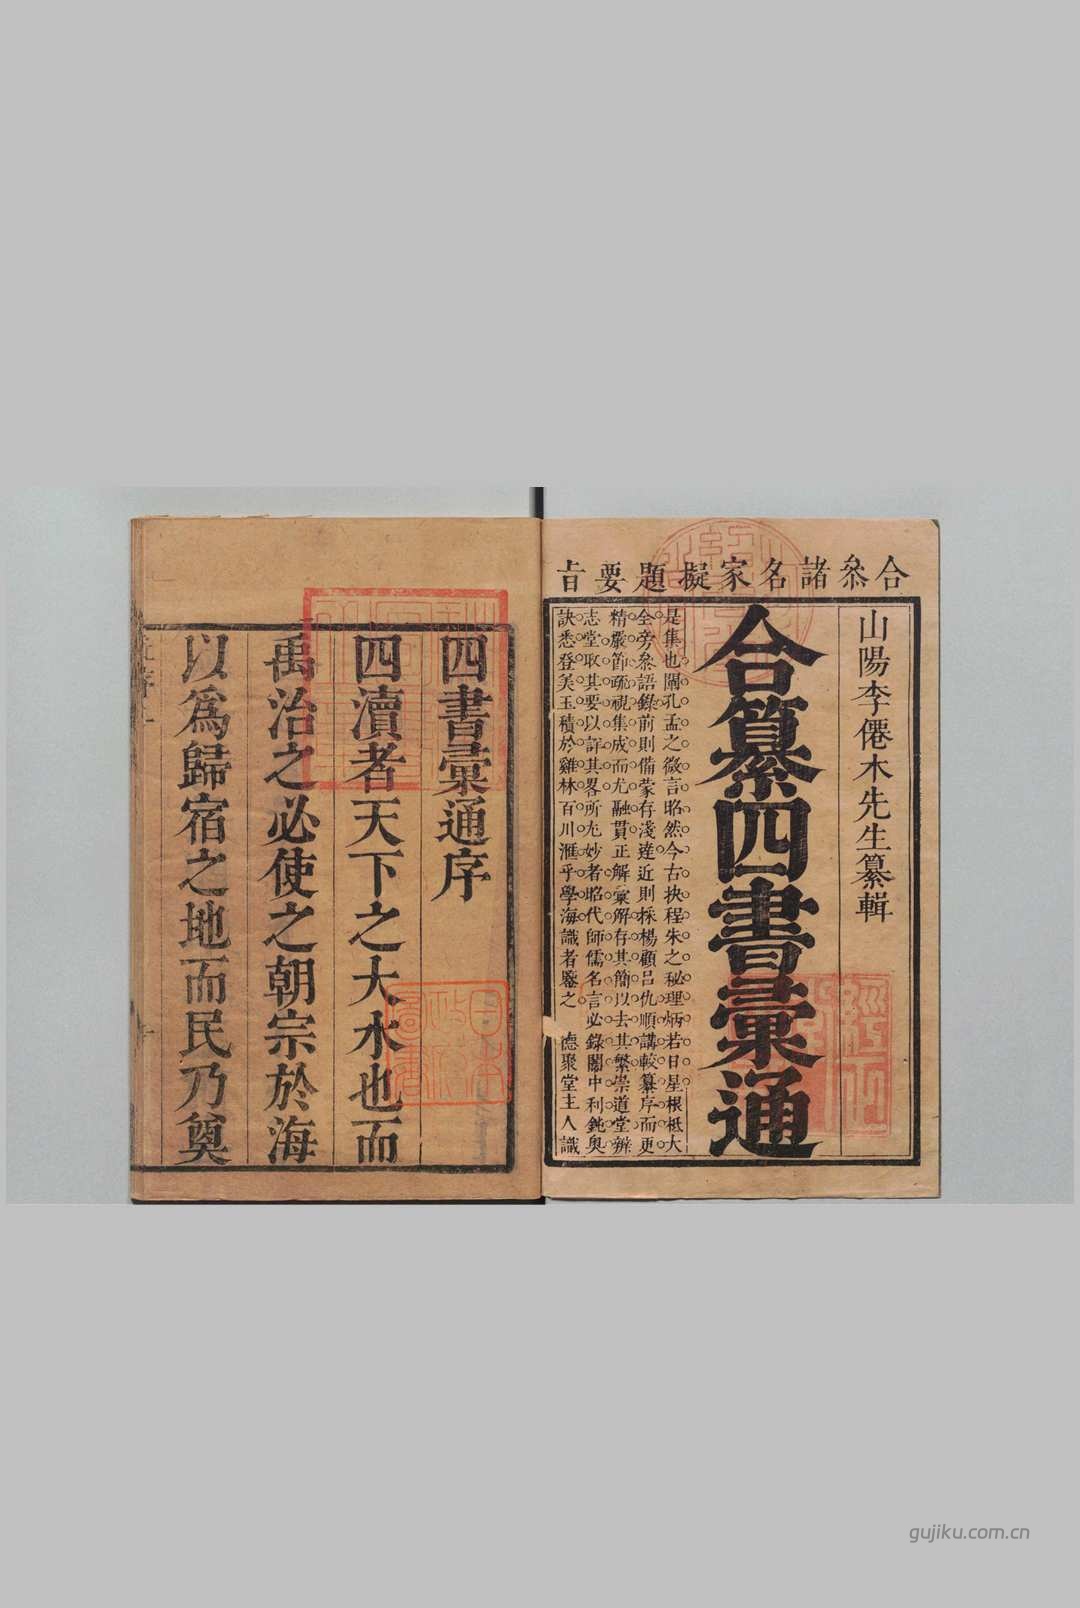 合叅諸名家擬題要旨
山陽李僊木先生纂輯
合纂四書彙通
是集也闡孔孟之微言昭然今古抉程朱之秘理炳若日星根柢大
全旁叅語錄前則備蒙存淺達近則採楊顧呂仇順講較纂序而更
精嚴節疏視集成而尤融貫正解彙解存其簡以去其繁崇道堂辨
志堂取其要以詳其畧所尤妙者昭代師儒名言必錄闈中利鈍奥
訣悉登美玉積於雞林百川滙乎學海識者鑒之 德聚堂主人識
四書彙通序
四瀆者天下之大水也而
禹治之必使之朝宗於海
以爲歸宿之地而民乃奠
日本
gujiku.com.cn